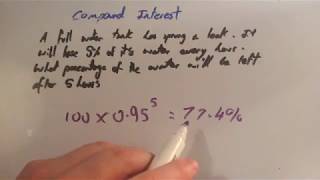 Compound Interest
A full water tank has sprung a leak. It
will lose 5% of it's water every hour.
What percentage of the water will be left
after 5 hours
100 × 0.95⁵ = 77.4%